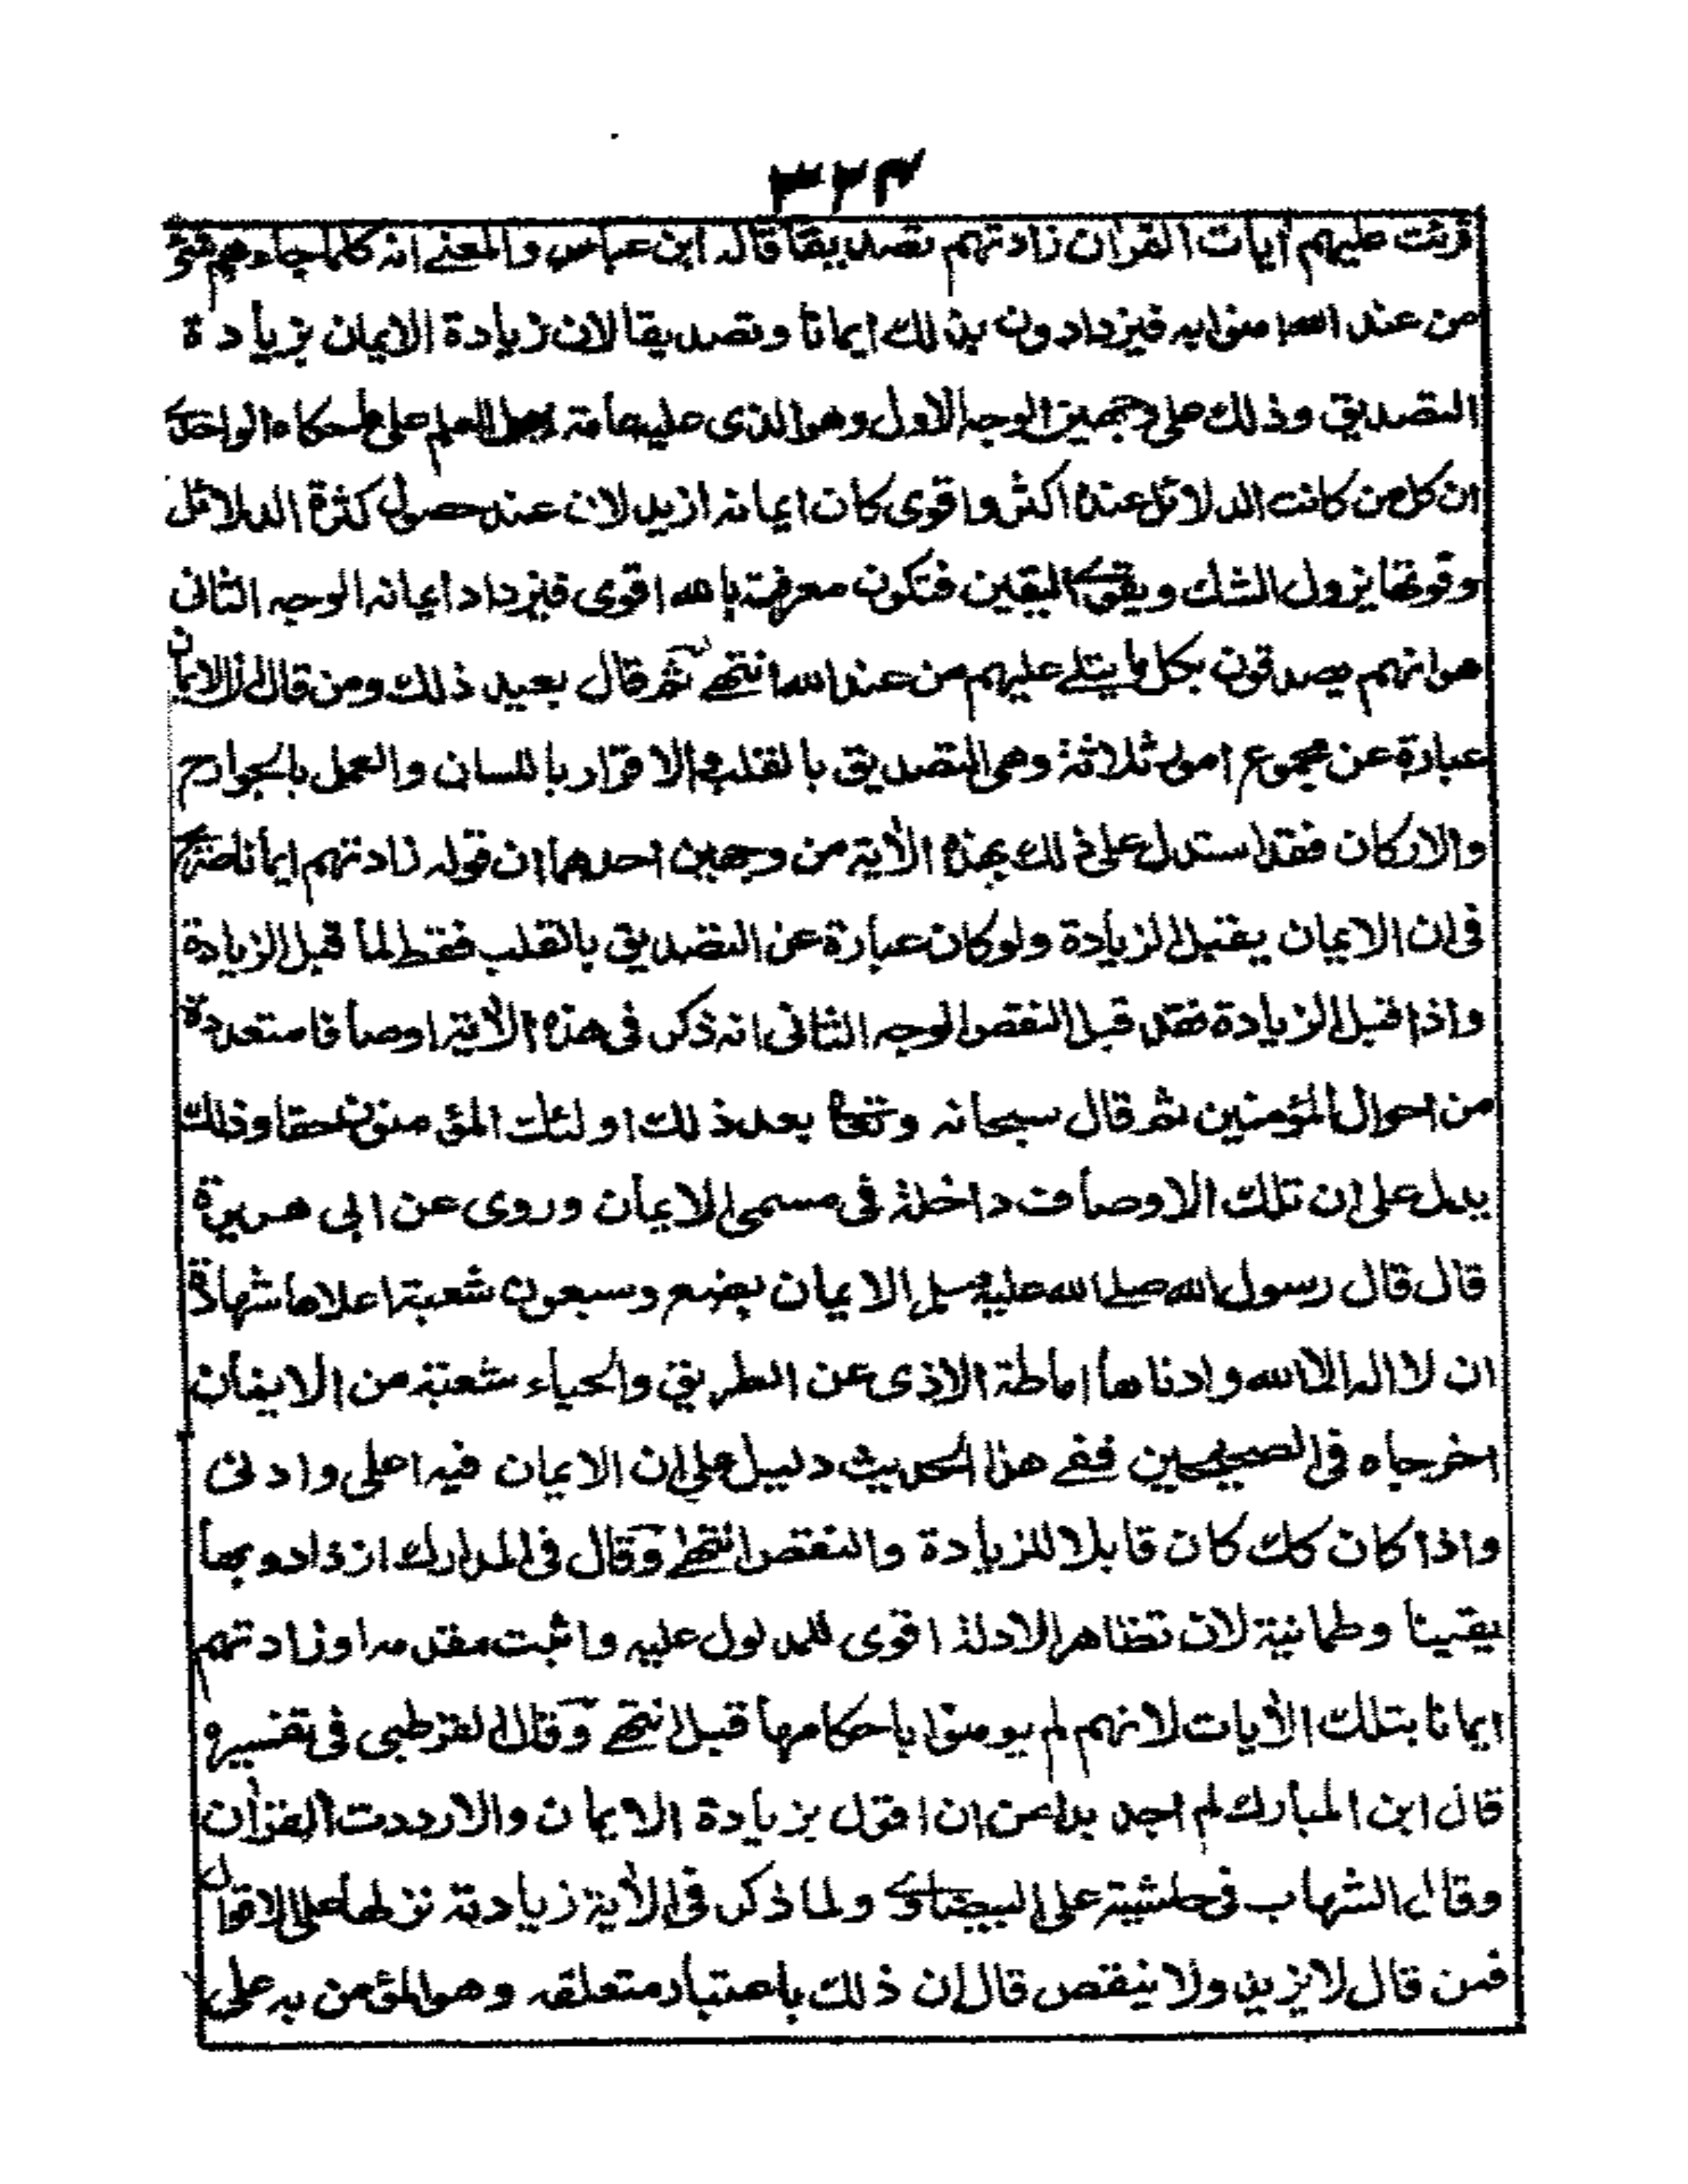 ٣٢٤
قرئت عليهم ايات القران زادتهم تصديقا قاله ابن عباس والمعنے انه كلما جاءهم شئ
من عند الله امنوا به فيزدادون بذلك ايمانا وتصديقا لان زيادة الايمان بزيادة
التصديق وذلك على وجهين الوجه الاول وهو الذى عليه عامة اهل العلم على ما حكاه الواحدى
ان كل من كانت الدلائل عنده اكثر واقوى كان ايمانه ازيد لان عند حصول كثرة الدلائل
وقوتها يزول الشك ويقوى اليقين فتكون معرفته بالله اقوى فيزداد ايمانه الوجه الثانى
هو انهم يصدقون بكل ما يتلے عليهم من عند الله انتهے ثم قال بعيد ذلك ومن قال ان الايمان
عبارة عن مجموع امور ثلاثة وهى التصديق بالقلب والاقرار باللسان والعمل بالجوارح
والاركان فقد استدل على ذلك بهذه الأية من وجهين احدهما ان قوله زادتهم ايمانا صريح
فى ان الايمان يقبل الزيادة ولو كان عبارة عن التصديق بالقلب فقط لما قبل الزيادة
واذا قبل الزيادة فقد قبل النقص الوجه الثانى انه ذكر فى هذه الأية اوصافا متعددة
من احوال المؤمنين ثم قال سبحانه وتعا بعد ذلك اولئك المؤمنون حقا وذلك
يدل على ان تلك الاوصاف داخلة فى مسمى الايمان وروى عن ابى هريرة
قال قال رسول الله صلے الله عليه وسلم الايمان بضع وسبعون شعبة اعلاها شهادة
ان لا اله الا الله وادناها اماطة الاذى عن الطريق والحياء شعبة من الايمان
اخرجاه فى الصحيحين ففے هذا الحديث دليل على ان الايمان فيه اعلى وادنى
واذا كان كك كان قابلا للزيادة والنقص انتهے وقال فى المدارك ازدادوا بها
يقينا وطمانية لان تظاهر الادلة اقوى للمدلول عليه واثبت مقدمه او زادتهم
ايمانا بتلك الأيات لانهم لم يومنوا باحكامها قبل انتهے وقال القرطبى فى تفسيره
قال ابن المبارك لم اجد بدا من ان اقول بزيادة الايمان والا رددت القرأن
وقال الشهاب فى حاشية على البيضاوے ولما ذكر فى الأية زيادته نزلها على الاقوال
فمن قال لا يزيد ولا ينقص قال ان ذلك باعتبار متعلقه وهو المؤمن به على